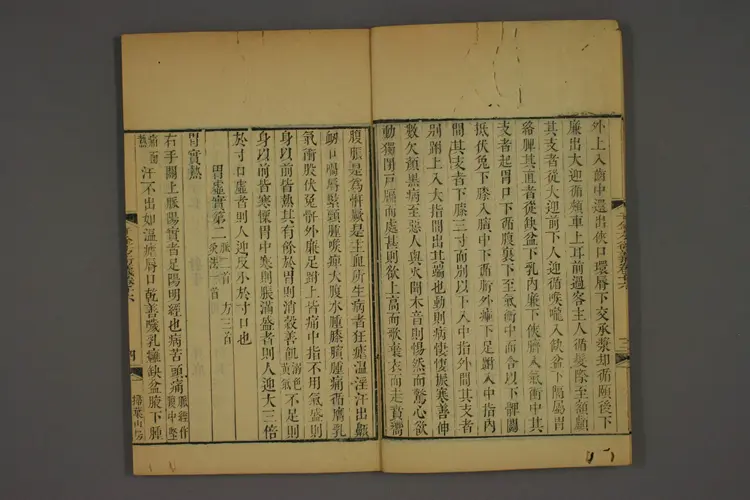 外上入齒中還出俠口環唇下交承漿却循頤後下
廉出大迎循頰車上耳前過客主人循髮際至額顱
其支者從大迎前下人迎循喉嚨入缺盆下膈屬胃
絡脾其直者從缺盆下乳內廉下俠臍入氣衝中其
支者起胃口下循腹裏下至氣衝中而合以下髀關
抵伏兔下膝入臏中下循脛外廉下足跗入中指內
間其支者下膝三寸而別以下入中指外間其支者
別跗上入大指間出其端也動則病悽悽振寒善伸
數欠顏黑病至惡人與火聞木音則惕然而驚心欲
動獨閉戶牖而處甚則欲上高而歌棄衣而走賁嚮
腹脹是為骭厥是主血所生病者狂瘧溫淫汗出鼽
衂口喎唇緊頸腫喉痺大腹水腫膝臏腫痛循膺乳
氣衝股伏兔骭外廉足跗上皆痛中指不用氣盛則
身以前皆熱其有餘於胃則消穀善飢溺色黃氣不足則
身以前皆寒慄胃中寒則脹滿盛者則人迎大三倍
於寸口虛者則人迎反小於寸口也
胃虛實第二 脈二首 方三首 灸法一首
胃實熱
右手關上脈陽實者足陽明經也病苦頭痛脈經作腹中堅
痛而熱汗不出如溫瘧唇口乾善噦乳癰缺盆腋下腫
三
四
掃葉山房